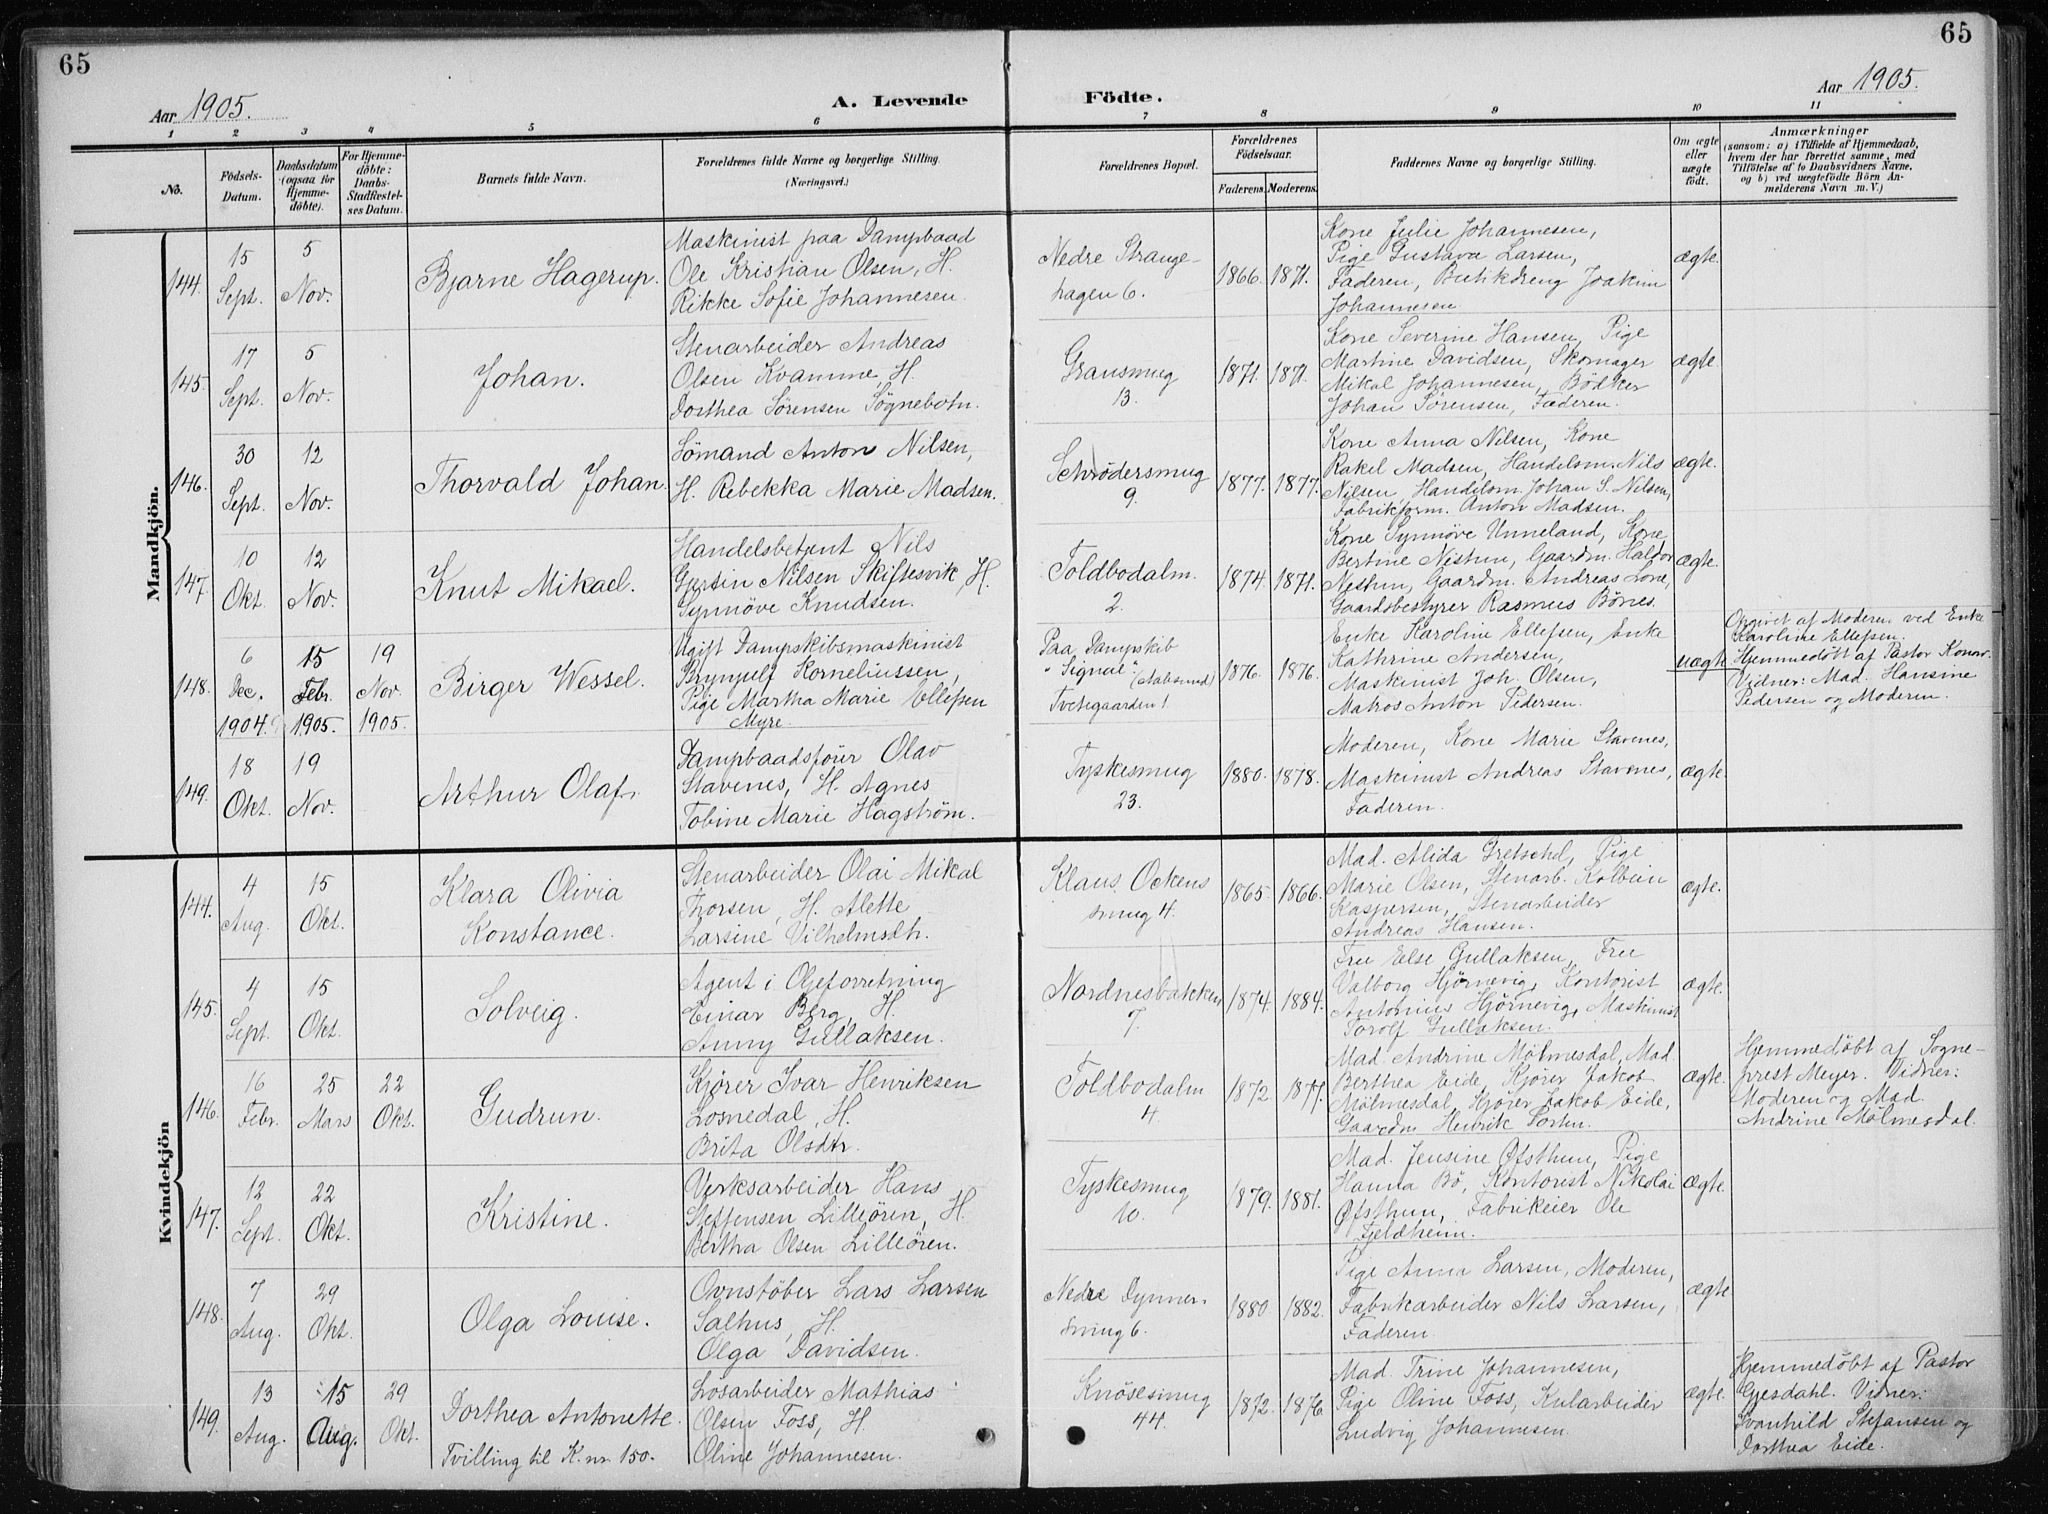 65
65
Aar 1905.
A. Levende
Födte.
Aar 1905.
1 2 3 4 5 6 7 8 9 10 11
No.
Födsels-Datum.
Daabsdatum (ogsaa for Hjemme-döbte).
For Hjemme-döbte: Daabs-Stadfæstel-ses Datum.
Barnets fulde Navn.
Forældrenes fulde Navne og borgerlige Stilling. (Næringsvei.)
Forældrenes Bopæl.
Forældrenes Födselsaar.
Faderens. Moderens.
Faddernes Navne og borgerlige Stilling.
Om ægte eller uægte födt.
Anmærkninger
(saasom: a) i Tilfælde af Hjemmedaab,
hvem der har forrettet samme, med
Tilföielse af to Daabsvidners Navne,
og b) ved uægtefödte Börn An-
melderens Navn m. V.)
Mandkjön.
144.
15 Sept.
5 Nov.
Bjarne Hagerup.
Maskinist paa Dampbaad
Ole Kristian Olsen, H.
Rikke Sofie Johannesen.
Nedre Strange-
hagen 6.
1866. 1871.
Kone Julie Johannesen,
Pige Gustava Larsen,
Faderen, Butikdreng Joakim
Johannesen.
ægte.
145.
17 Sept.
5 Nov.
Johan.
Stenarbeider Andreas
Olsen Kvamme, H.
Dorthea Sørensen Søgnebotn.
Gransmug
13.
1871. 1871.
Kone Severine Hansen, Pige
Martine Davidsen, Skomager
Mikal Johannesen, Bödker
Johan Sørensen, Faderen.
ægte.
146.
30 Sept.
12 Nov.
Thorvald Johan.
Sömand Anton Nilsen,
H. Rebekka Marie Madsen.
Schrödersmug
9.
1877. 1877.
Kone Anna Nilsen, Kone
Rakel Madsen, Handelsm. Nils
Nilsen, Handelsm. Johan S. Nilsen,
Fabrikform. Anton Madsen.
ægte.
147.
10 Okt.
12 Nov.
Knut Mikael.
Handelsbetjent Nils
Gjertin Nilsen Skiftesvik, H.
Synnöve Knudsen.
Toldbodalm.
2.
1874. 1871.
Kone Synnöve Unneland, Kone
Bertine Nestun, Gaardm. Haldor
Nestun, Gaardm. Andreas Lone,
Gaardsbestyrer Rasmus Bönes.
ægte.
148.
6 Dec. 1904.
15 Febr. 1905.
19 Nov. 1905.
Birger Wessel.
Ugift Dampskibsmaskinist
Brynjulf Korneliussen,
Pige Martha Marie Ellefsen
Myre.
Paa Dampskib
"Signal"
Tvetegaarden 1
1876. 1876.
Enke Karoline Ellefsen, Enke
Kathrine Andersen,
Maskinist Joh. Olsen,
Matros Anton Pedersen.
uægte
Opgivet af Moderen ved Enke
Karoline Ellefsen.
Hjemmedöbt af Pastor Konow.
Vidner: Mad. Hansine
Pedersen og Moderen.
149.
18 Okt.
19 Nov.
Arthur Olaf.
Dampbaadsförer Olav
Stavenes, H. Agnes
Tobine Marie Hagström.
Tyskesmug
23.
1880. 1878.
Moderen, Kone Marie Stavenes,
Maskinist Andreas Stavenes,
Faderen.
ægte.
Kvindekjön
144.
4 Aug.
15 Okt.
Klara Olivia
Konstance.
Stenarbeider Olai Mikal
Thorsen, H. Alette
Larsine Vilhelmsdtr.
Klaus Ockens
smug 4.
1865. 1866.
Mad. Alida Gretschel, Pige
Marie Olsen, Stenarb. Kolbein
Kaspersen, Stenarbeider
Andreas Hansen.
ægte.
145.
4 Sept.
15 Okt.
Solveig.
Agent i Oljeforretning
Einar Berg, H.
Anny Gullaksen.
Nordnesbakken
7.
1874. 1884.
Fru Else Gullaksen, Fru
Valborg Hjørnevig, Kontorist
Antonius Hjørnevig, Maskinist
Torolf Gullaksen.
ægte.
146.
16 Febr.
25 Mars
22 Okt.
Gudrun.
Kjører Ivar Henriksen
Losnedal, H.
Brita Olsdtr.
Toldbodalm
4.
1872. 1877.
Mad. Andrine Mölmesdal, Mad.
Berthea Eide, Kjører Jakob
Mölmesdal, Kjører Jakob Eide,
Gaardm Henrik Torsen.
ægte.
Hjemmedöbt af Sogne-
prest Meyer. Vidner:
Moderen og Mad.
Andrine Mölmesdal.
147.
12 Sept.
22 Okt.
Kristine.
Verksarbeider Hans
Steffensen Lilleören, H.
Bertha Olsen Lilleören.
Tyskesmug
10.
1879. 1881.
Mad. Jensine Øfsthun, Pige
Hanna Bö, Kontorist Nikolai
Øfsthun, Fabrikeier Ole
Fjeldheim.
ægte.
148.
7 Aug.
29 Okt.
Olga Louise.
Ovnstöber Lars Larsen
Salhus, H.
Olga Davidsen.
Nedre Dynner-
smug 6.
1880. 1882.
Pige Anna Larsen, Moderen,
Fabrikarbeider Nils Larsen,
Faderen.
ægte
149.
13 Aug.
15 Aug.
29 Okt.
Dorthea Antonette.
Tvilling til K. nr. 150.
Losarbeider Mathias
Olsen Foss, H.
Oline Johannesen.
Knösesmug
44.
1872. 1876.
Mad. Trine Johannesen,
Pige Oline Foss, Kularbeider
Ludvig Johannesen.
ægte.
Hjemmedöbt af Pastor
Gjesdahl. Vidner:
Svanhild Stefansen og
Dorthea Eide.